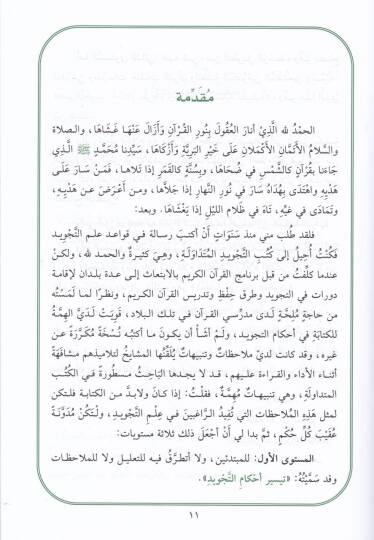 مُقَدِّمة
الحمْدُ لله الَّذِيْ أنارَ العُقُولَ بِنُورِ القُرْآنِ وَأَزَالَ عَنْهَا غَشَاهَا، والصلاة
والسلامُ الأتَمَّانِ الأَكْمَلانِ عَلَى خَيْرِ البَرِيَّةِ وَأَزْكَاهَا، سَيِّدِنا مُحَمَّدٍ ﷺ الَّذي
جَاءَنا بقُرْآنٍ كالشَّمْسِ في ضُحَاهَا، وبِسُنَّةٍ كالقَمَرِ إذا تَلَاهَا، فَمَنْ سَارَ عَلَى
هَدْيِهِ واهْتَدَى بِهُدَاهُ سَارَ في نُورِ النَّهارِ إذا جَلَّاها، ومن أَعْرَضَ عن هَدْيِهِ،
وتَمَادَى في غيِّهِ، تَاهَ في ظَلامِ الليْلِ إذا يَغْشَاهَا. وبعد:
فلقد طُلب مني منذ سَنَوَاتٍ أَنْ أكتبَ رسالة في قواعد علم التَّجْوِيد
فَكُنْتُ أُحِيلُ إلى كُتُبِ التَّجْويدِ المُتَدَاوَلَةِ، وهِيَ كثيرةٌ والحمد لله، ولكنْ
عندما كلِّفْتُ من قبل برنامج القرآن الكريم بالابتعاث إلى عدة بلدان لإقامة
دورات في التجويد وطرق حِفْظِ وتدريس القرآن الكريم، ونظرًا لما لَمَسْتُه
من حاجةٍ مُلِحَّةٍ لدى مدرِّسي القرآن في تلك البلاد، قَوِيَتْ لَدَيَّ الهِمَّةُ
للكتابة في أحكام التجويد، ولَمْ أشَأْ أن يكونَ ما أكتبُه نُسْخَةً مُكَرَّرَةً عن
غيره، وقد كانت لديَّ ملاحظاتٌ وتنبيهاتٌ يُلَقِّنُها المشايخُ لتلاميذهم مشافَهَةً
أثناء الأداء والقراءة عليهم، قد لا يجدها البَاحِثُ مسطورةً في الكُتُب
المتداولَةِ، وهي تنبيهاتٌ مُهِمَّةٌ، فقلْتُ: إذا كان ولابدَّ من الكتابة فلتكن
لمثل هَذِهِ المُلاحظات التي تُفِيدُ الرَّاغبينَ في عِلْمِ التَّجْويدِ، ولْتَكُنْ مُدَوَّنَةً
عُقَيْبَ كُلِّ حُكْمٍ، ثمَّ بدا لي أَنْ أَجْعَلَ ذلك ثلاثة مستويات:
المستوى الأول: للمبتدئين، ولا أتطرَّقُ فيه للتعليل ولا للملاحظات
وقد سَمَّيْتُهُ: «تيسير أحْكامِ التَّجْويدِ».
١١